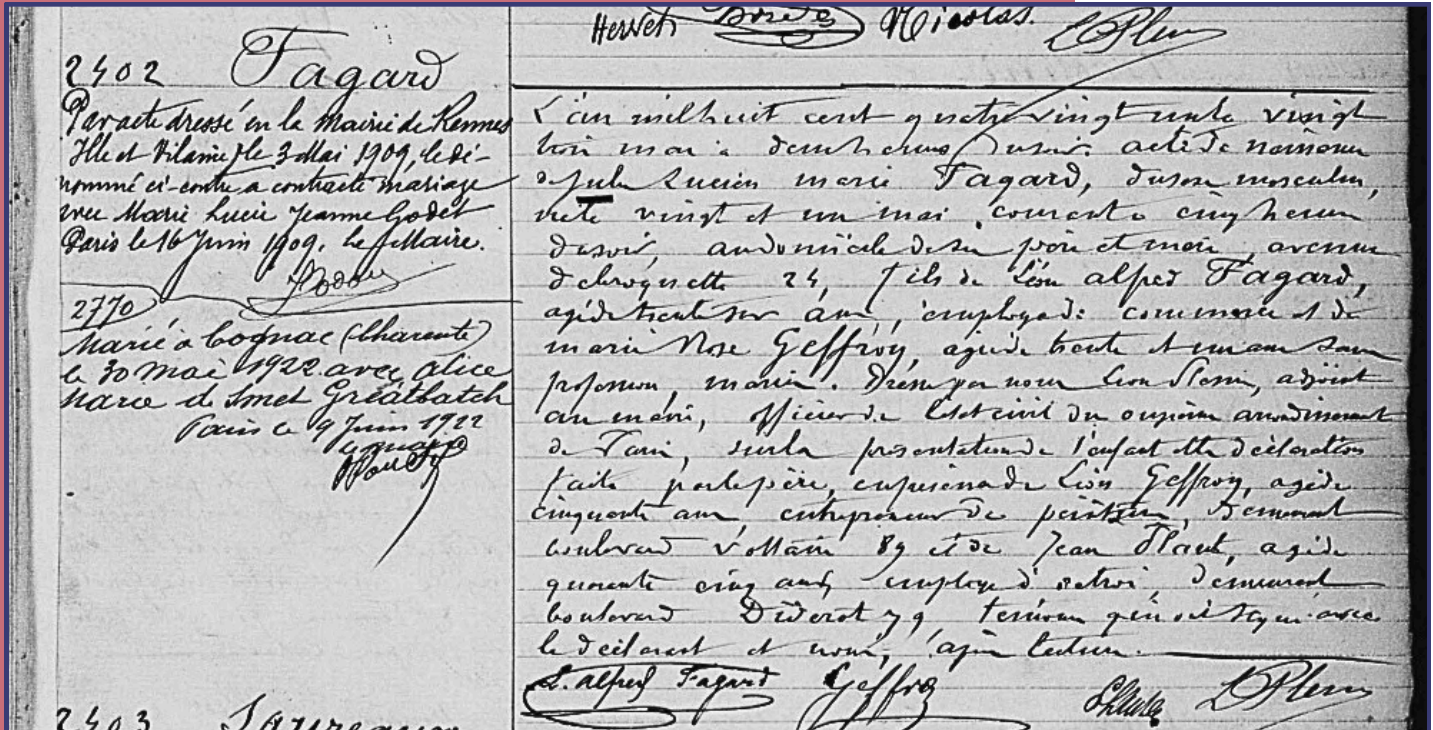 Hervet Nicolas. L Plem
2402 Fagard
Par acte dressé en la Mairie de Rennes
Ille et Vilaine, le 3 Mai 1909, le dé-
nommé ci-contre a contracté mariage
avec Marie Lucie Jeanne Godet
Paris le 16 Juin 1909. Le Maire.
2770
Marié à Cognac (Charente)
le 30 mai 1922 avec Alice
Marie de Smet Greatbatch
Paris le 9 Juin 1922
L'an mil huit cent quatre vingt vingt
trois mai à du soir. acte de naissance
de Jules Lucien Marie Fagard, du sexe masculin,
né le vingt et un mai, courant à cinq heures
du soir, au domicile de ses père et mère avenue
24, fils de Léon alfred Fagard,
agé de trente ans, employé de commerce et de
marie Rose Geffroy, agée de trente et un ans sans
profession, mariés. Dressé par nous Léon, adjoint
au maire, officier de l'état civil du onzième arrondissement
de Paris, sur la présentation de l'enfant et la déclaration
faite par le père, en présence de Léon Geffroy, agé de
cinquante ans, entrepreneur de peinture, demeurant
boulevard Voltaire 89 et de Jean, agé de
quarante cinq ans, employé d'octroi, demeurant
boulevard Diderot 79 témoins qui ont signé avec
le déclarant et nous, après lecture.
L. alfred Fagard Geffroy L Plem
2403